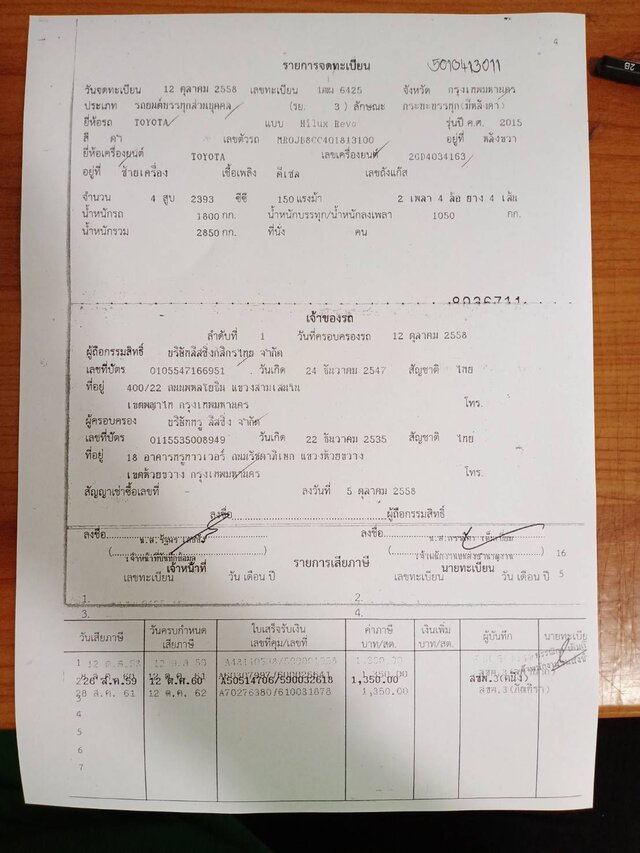 4
รายการจดทะเบียน 5010413011
วันจดทะเบียน 12 ตุลาคม 2558 เลขทะเบียน 6425 จังหวัด กรุงเทพมหานคร
ประเภท รถยนต์บรรทุกส่วนบุคคล (รย. 3 ) ลักษณะ กระบะบรรทุก(มีหลังคา)
ยี่ห้อรถ TOYOTA แบบ Hilux Revo รุ่นปี ค.ศ. 2015
สี เทา เลขตัวรถ MR0JB8CC401813100 อยู่ที่ หลังขวา
ยี่ห้อเครื่องยนต์ TOYOTA เลขเครื่องยนต์ 2GD4034163
อยู่ที่ ซ้ายเครื่อง เชื้อเพลิง ดีเซล เลขถังแก๊ส
จำนวน 4 สูบ 2393 ซีซี 150 แรงม้า 2 เพลา 4 ล้อ ยาง 4 เส้น
น้ำหนักรถ 1800 กก. น้ำหนักบรรทุก/น้ำหนักลงเพลา 1050 กก.
น้ำหนักรวม 2850 กก. ที่นั่ง คน
เจ้าของรถ
ลำดับที่ 1 วันที่ครอบครองรถ 12 ตุลาคม 2558
ผู้ถือกรรมสิทธิ์ บริษัทลีสซิ่งกสิกรไทย จำกัด
เลขที่บัตร 0105547166951 วันเกิด 24 ธันวาคม 2547 สัญชาติ ไทย
ที่อยู่ 400/22 ถนนพหลโยธิน แขวงสามเสนใน
เขตพญาไท กรุงเทพมหานคร โทร.
ผู้ครอบครอง บริษัททรู ลีสซิ่ง จำกัด
เลขที่บัตร 0115535008949 วันเกิด 22 ธันวาคม 2535 สัญชาติ ไทย
ที่อยู่ 18 อาคารทรูทาวเวอร์ ถนนรัชดาภิเษก แขวงห้วยขวาง
เขตห้วยขวาง กรุงเทพมหานคร โทร.
สัญญาเช่าซื้อเลขที่ - ลงวันที่ 5 ตุลาคม 2558
ลงชื่อ ผู้ถือกรรมสิทธิ์
ลงชื่อ ลงชื่อ
เจ้าหน้าที่บันทึกข้อมูล 16
เจ้าหน้าที่ รายการเสียภาษี นายทะเบียน
เลขทะเบียน วัน เดือน ปี เลขทะเบียน วัน เดือน ปี 5
1. 2.
3. 4.
วันเสียภาษี วันครบกำหนดเสียภาษี ใบเสร็จรับเงิน เลขที่คุม/เลขที่ ค่าภาษี บาท/สต. เงินเพิ่ม บาท/สต. ผู้บันทึก นายทะเบียน
1 12 ต.ค.58 12 ต.ค. 59 1,350.00
2 26 ส.ค.59 12 ต.ค.60 A50514706/590032618 1,350.00
28 ส.ค. 61 12 ต.ค. 62 A70276380/610031878 1,350.00
5
6
7